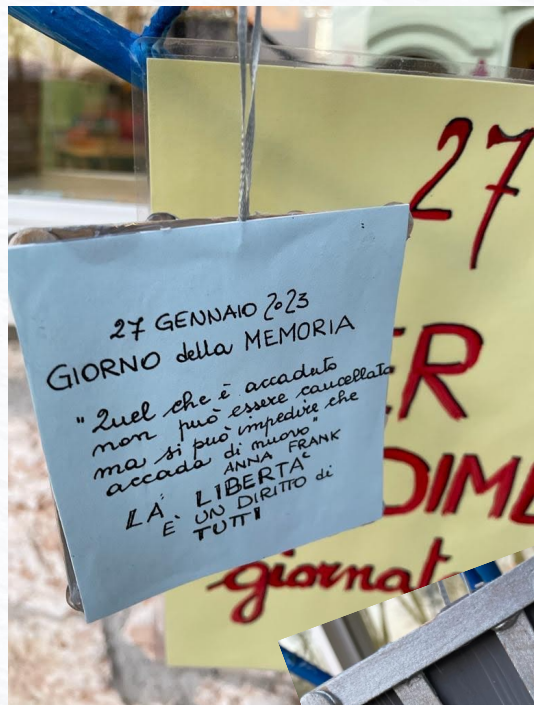 27 GENNAIO 2023
GIORNO della MEMORIA
"Quel che è accaduto
non può essere cancellato
ma si può impedire che
accada di nuovo"
ANNA FRANK
LA LIBERTA'
E' UN DIRITTO di
TUTTI
27